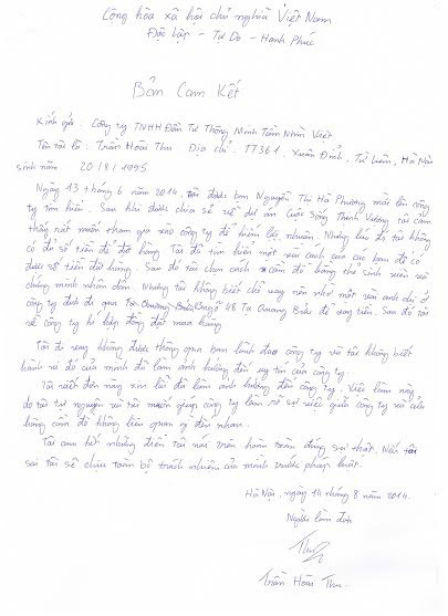 Cộng hòa xã hội chủ nghĩa Việt Nam
Độc lập - Tự Do - Hạnh Phúc
Bản Cam Kết
Kính gửi Công ty TNHH Đầu Tư Thông Minh Tầm Nhìn Việt
Tên tôi là: Trần Hoài Thu Địa chỉ: TT361. Xuân Đỉnh, Từ Liêm, Hà Nội
sinh năm 20/8/1995
Ngày 13 tháng 6 năm 2014, tôi được bạn Nguyễn Thị Hà Phương mời lên công
ty tìm hiểu. Sau khi được chia sẻ về dự án Cuộc Sống Thịnh Vượng tôi cảm
thấy rất muốn tham gia vào công ty để kiếm lợi nhuận. Nhưng lúc đó tôi không
có đủ số tiền để đặt hàng. Tôi đã tìm kiếm một vài cách của các bạn để có
được số tiền đặt hàng. Sau đó tôi chọn cách cầm đồ bằng thẻ sinh viên và
chứng minh nhân dân. Nhưng tôi không biết chỗ vay nên nhờ một vài anh chị ở
công ty đưa đi qua Ngõ 48 Tạ Quang Bửu để vay tiền. Sau đó tôi
về công ty kí hợp đồng đặt mua hàng
Tôi đi vay không được thông qua ban lãnh đạo công ty và tôi không biết
hành vi đó của mình đã làm ảnh hưởng đến uy tín của công ty.
Tôi viết đơn này xin lỗi đã làm ảnh hưởng đến công ty. Việc làm này
do tôi tự nguyện và tôi muốn giúp công ty làm rõ sự việc giữa công ty và cửa
hàng cầm đồ không liên quan gì đến nhau.
Tôi cam kết những điều tôi nói trên hoàn toàn đúng sự thật. Nếu tôi
sai tôi sẽ chịu toàn bộ trách nhiệm của mình trước pháp luật.
Hà Nội, ngày 14 tháng 8 năm 2014.
Người làm đơn
Thu
Trần Hoài Thu.